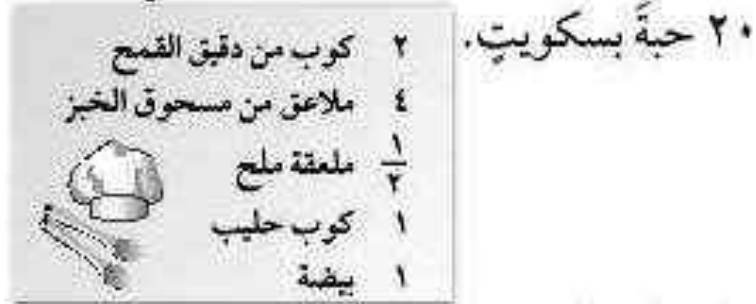 ٢٠ حبةَ بسكويتٍ.
٢ كوب من دقيق القمح
٤ ملاعق من مسحوق الخبز
١/٢ ملعقة ملح
١ كوب حليب
١ بيضة